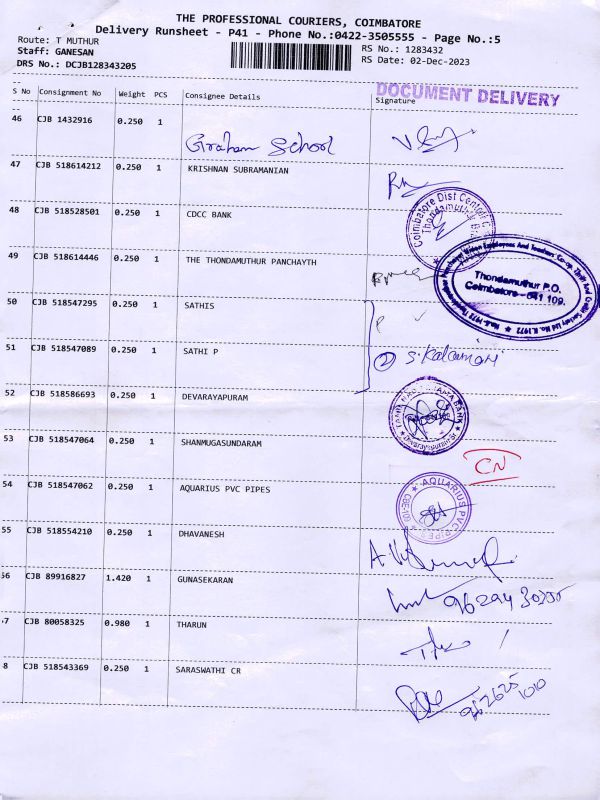 THE PROFESSIONAL COURIERS, COIMBATORE
Delivery Runsheet - P41 - Phone No.:0422-3505555 - Page No.:5
Route: T MUTHUR
RS No.: 1283432
Staff: GANESAN
RS Date: 02-Dec-2023
DRS No.: DCJB128343205
DOCUMENT DELIVERY
S No Consignment No Weight PCS Consignee Details Signature
46 CJB 1432916 0.250 1
Graham School
47 CJB 518614212 0.250 1 KRISHNAN SUBRAMANIAN
48 CJB 518528501 0.250 1 CDCC BANK
Coimbatore Dist Central
Thondamuthur
49 CJB 518614446 0.250 1 THE THONDAMUTHUR PANCHAYTH
Thondamuthur P.O.
Coimbatore - 641 109.
50 CJB 518547295 0.250 1 SATHIS
51 CJB 518547089 0.250 1 SATHI P
2 S. Kalamani
52 CJB 518586693 0.250 1 DEVARAYAPURAM
53 CJB 518547064 0.250 1 SHANMUGASUNDARAM
CN
54 CJB 518547062 0.250 1 AQUARIUS PVC PIPES
AQUARIUS PVC PIPES
55 CJB 518554210 0.250 1 DHAVANESH
56 CJB 89916827 1.420 1 GUNASEKARAN
57 CJB 80058325 0.980 1 THARUN
8 CJB 518543369 0.250 1 SARASWATHI CR
962625
1010